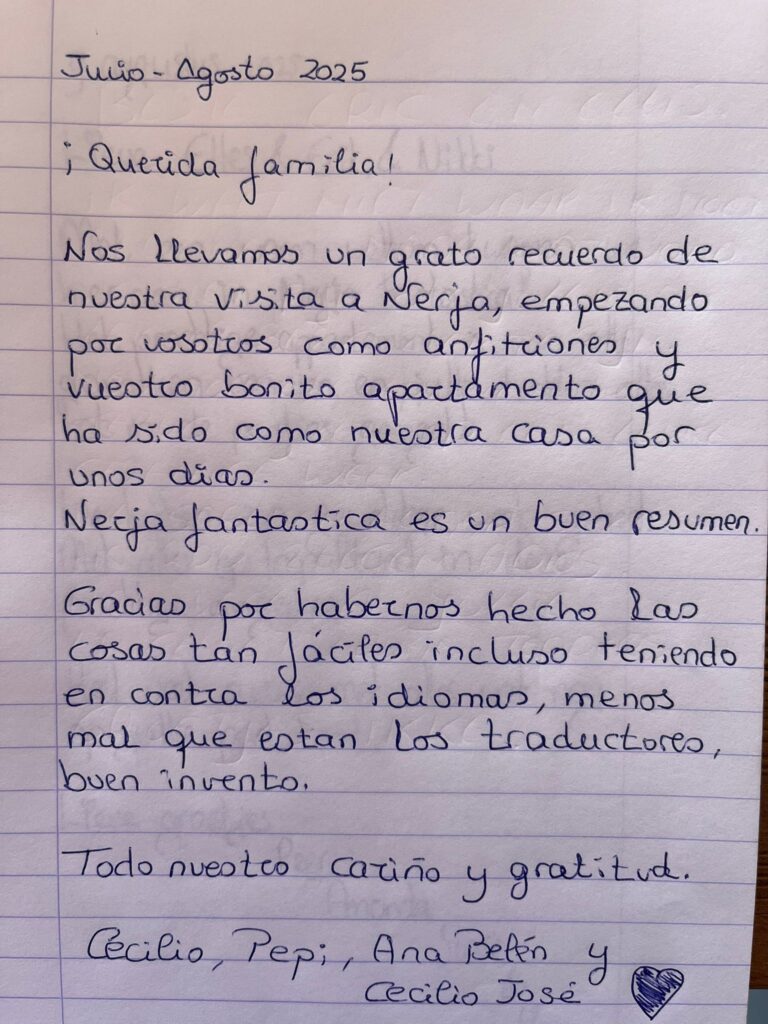 Julio - Agosto 2025
¡Querida familia!
Nos llevamos un grato recuerdo de
nuestra visita a Nerja, empezando
por vosotros como anfitriones y
vuestro bonito apartamento que
ha sido como nuestra casa por
unos dias.
Nerja fantastica es un buen resumen.
Gracias por habernos hecho las
cosas tan fáciles incluso teniendo
en contra los idiomas, menos
mal que estan los traductores,
buen invento.
Todo nuestro cariño y gratitud.
Cecilio, Pepi, Ana Belén y
Cecilio José